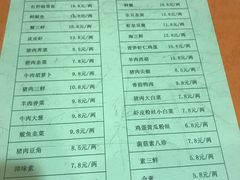 鲜鲅鱼 13.8元/两
蟹三鲜 10.8元/两
皮皮虾 13.8元/两
猪肉荠菜 8.5元/两
猪肉韭菜 7.8元/两
牛肉胡萝卜 9.8元/两
猪肉三鲜 9.8元/两
羊肉香菜 9.8元/两
牛肉大葱 9.8元/两
鱿鱼韭菜 9.8元/两
猪肉豆角 8.5元/两
津味素 7.8元/两
鲜蟹 18.8元/两
虾三鲜 10.8元/两
羊肉西葫 10.8元/两
猪肉尖椒 8.5元/两
香菇鸭肉 9.8元/两
猪肉大白菜 7.8元/两
虾皮粉丝小白菜 7.8元/两
鸡蛋黄瓜粉丝 6.8元/两
菌菇素八珍 7.8元/两
素三鲜 5.8元/两
合素 5.8元/两